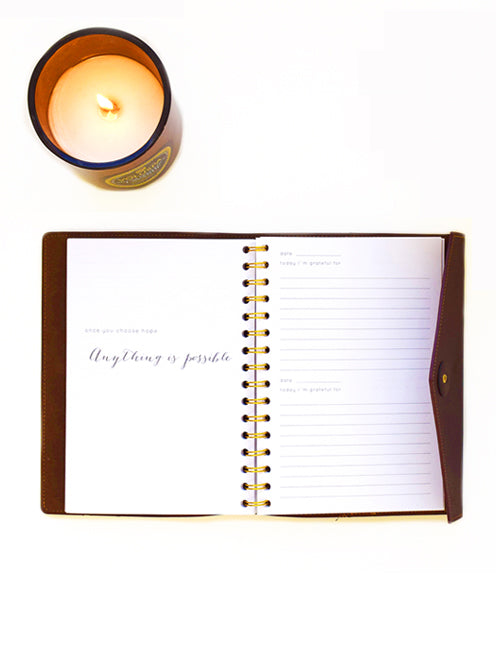 once you choose hope
Anything is possible
date
today i'm grateful for
date
today i'm grateful for